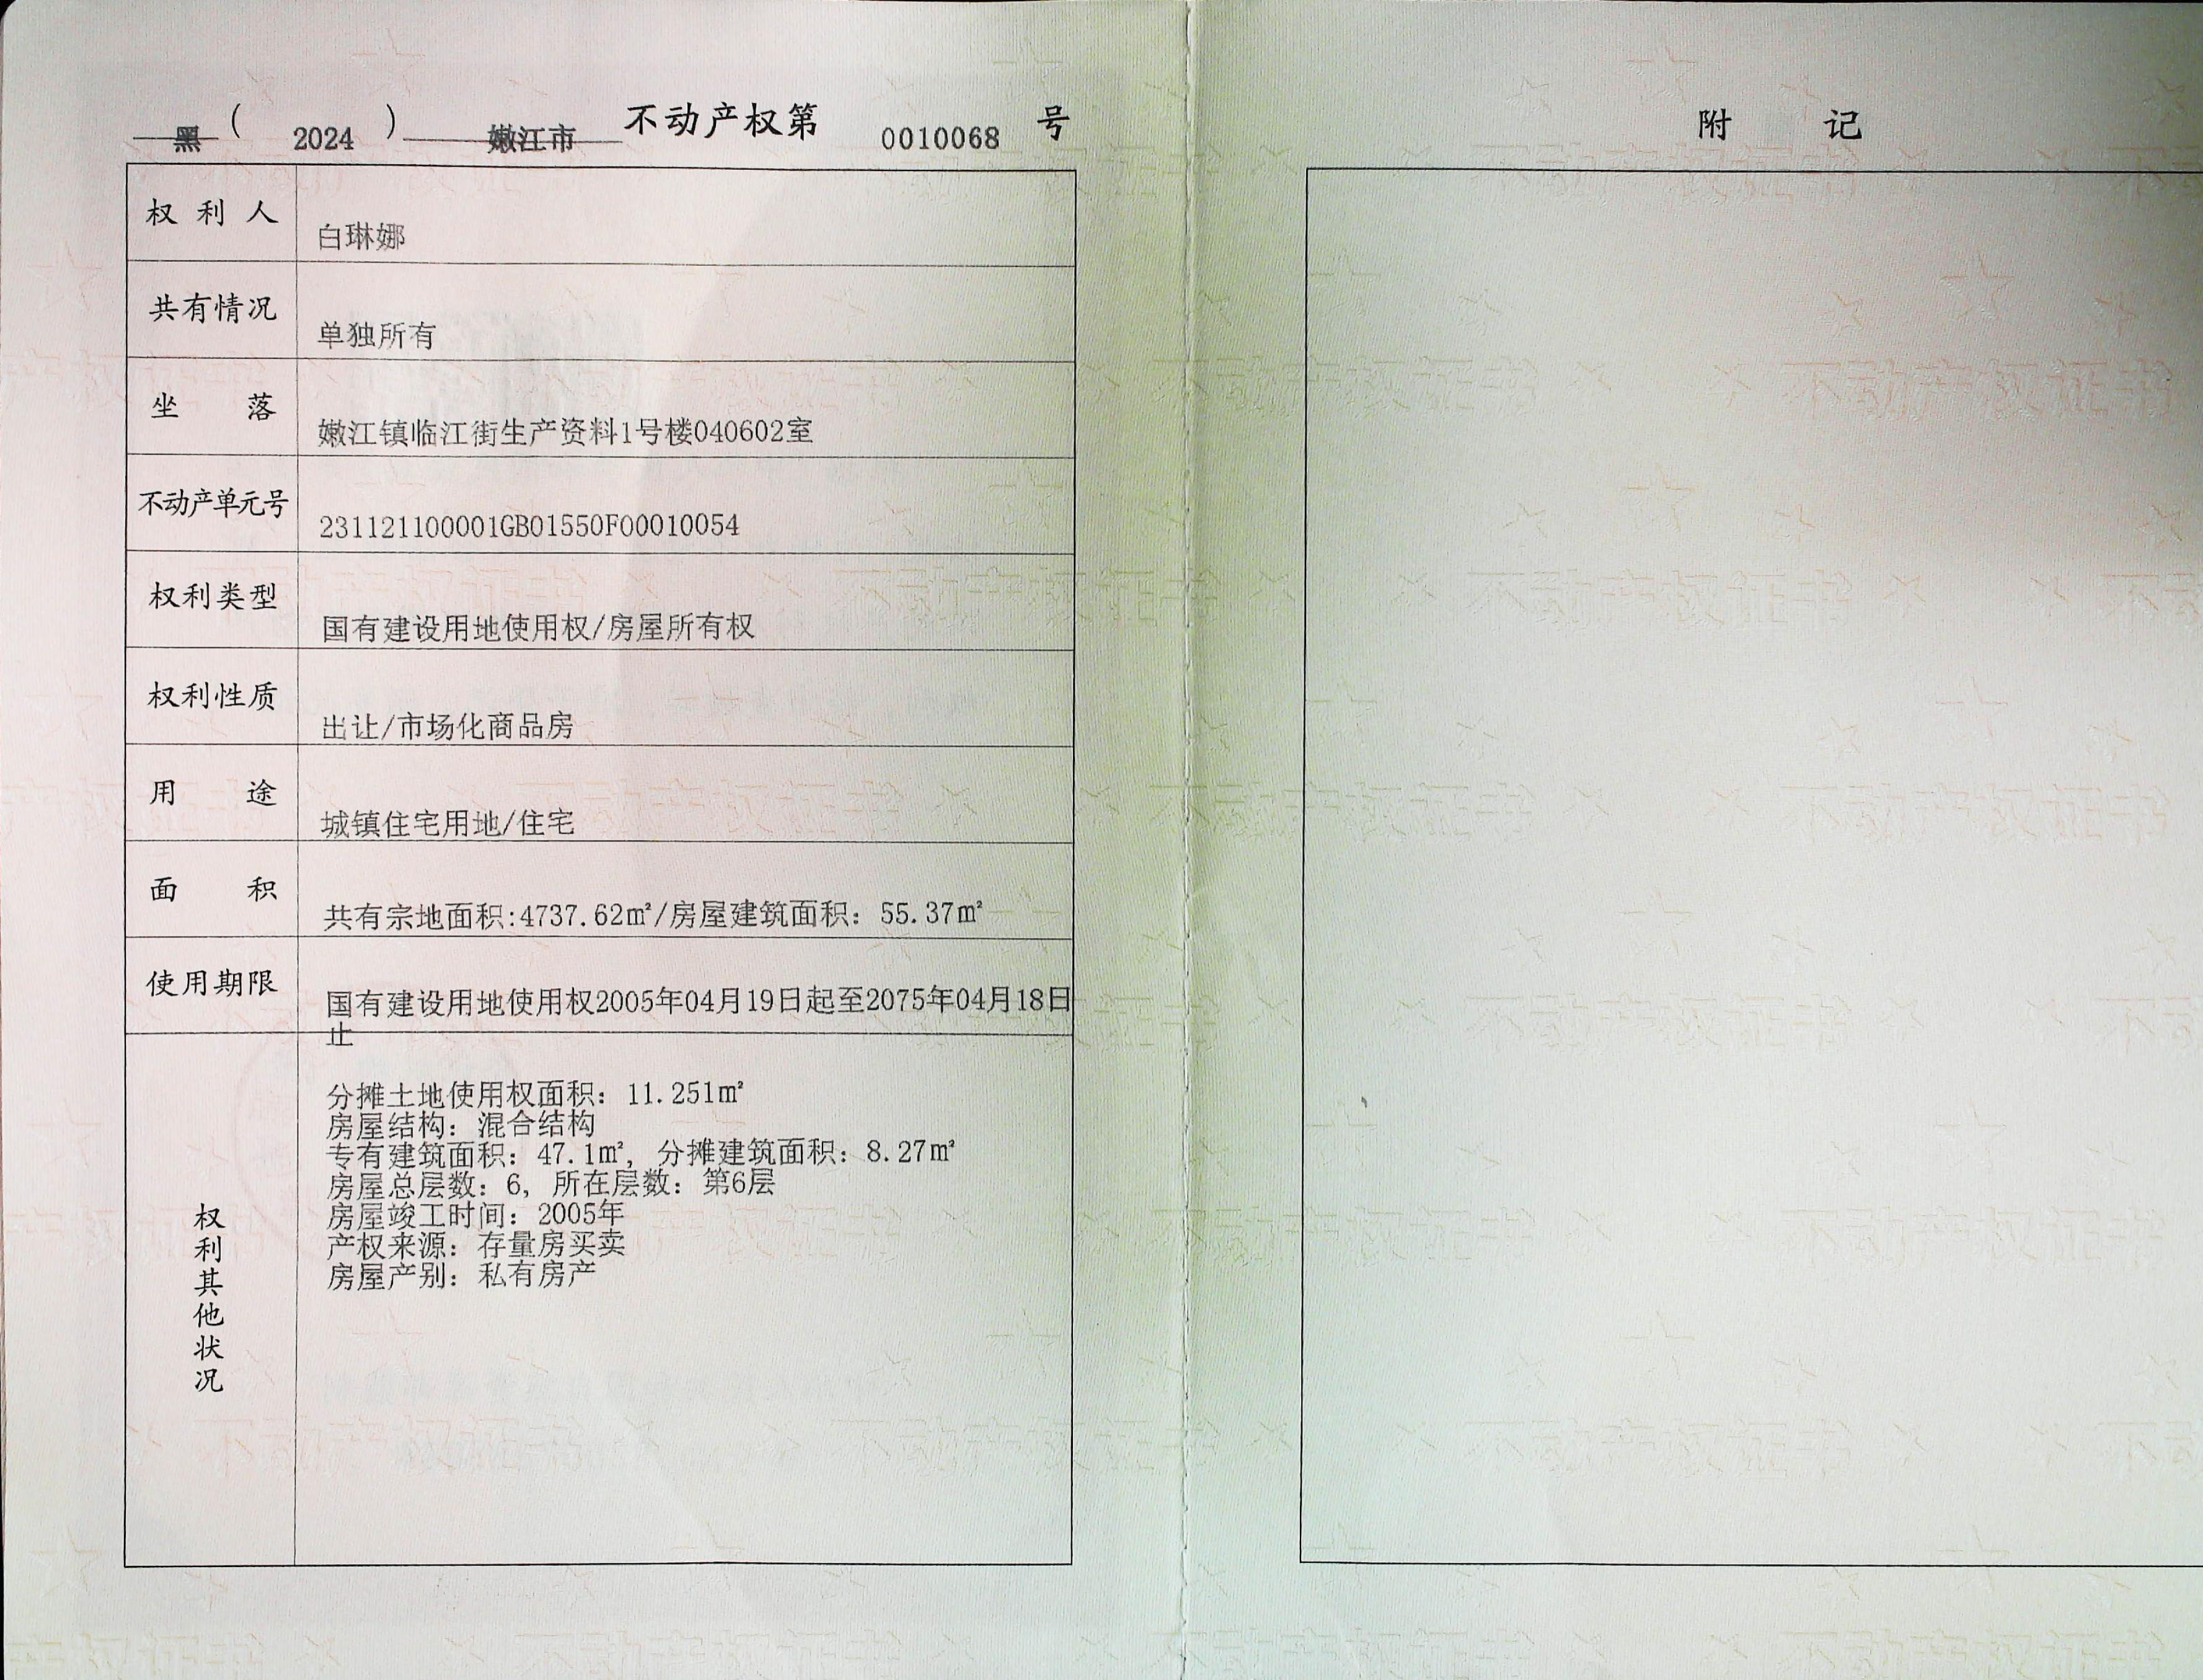 黑（2024）嫩江市不动产权第0010068号
权利人 白琳娜
共有情况 单独所有
坐落 嫩江镇临江街生产资料1号楼040602室
不动产单元号 231121100001GB01550F00010054
权利类型 国有建设用地使用权/房屋所有权
权利性质 出让/市场化商品房
用途 城镇住宅用地/住宅
面积 共有宗地面积:4737.62㎡/房屋建筑面积：55.37㎡
使用期限 国有建设用地使用权2005年04月19日起至2075年04月18日
止
权利其他状况
分摊土地使用权面积：11.251㎡
房屋结构：混合结构
专有建筑面积：47.1㎡，分摊建筑面积：8.27㎡
房屋总层数：6，所在层数：第6层
房屋竣工时间：2005年
产权来源：存量房买卖
房屋产别：私有房产
附记